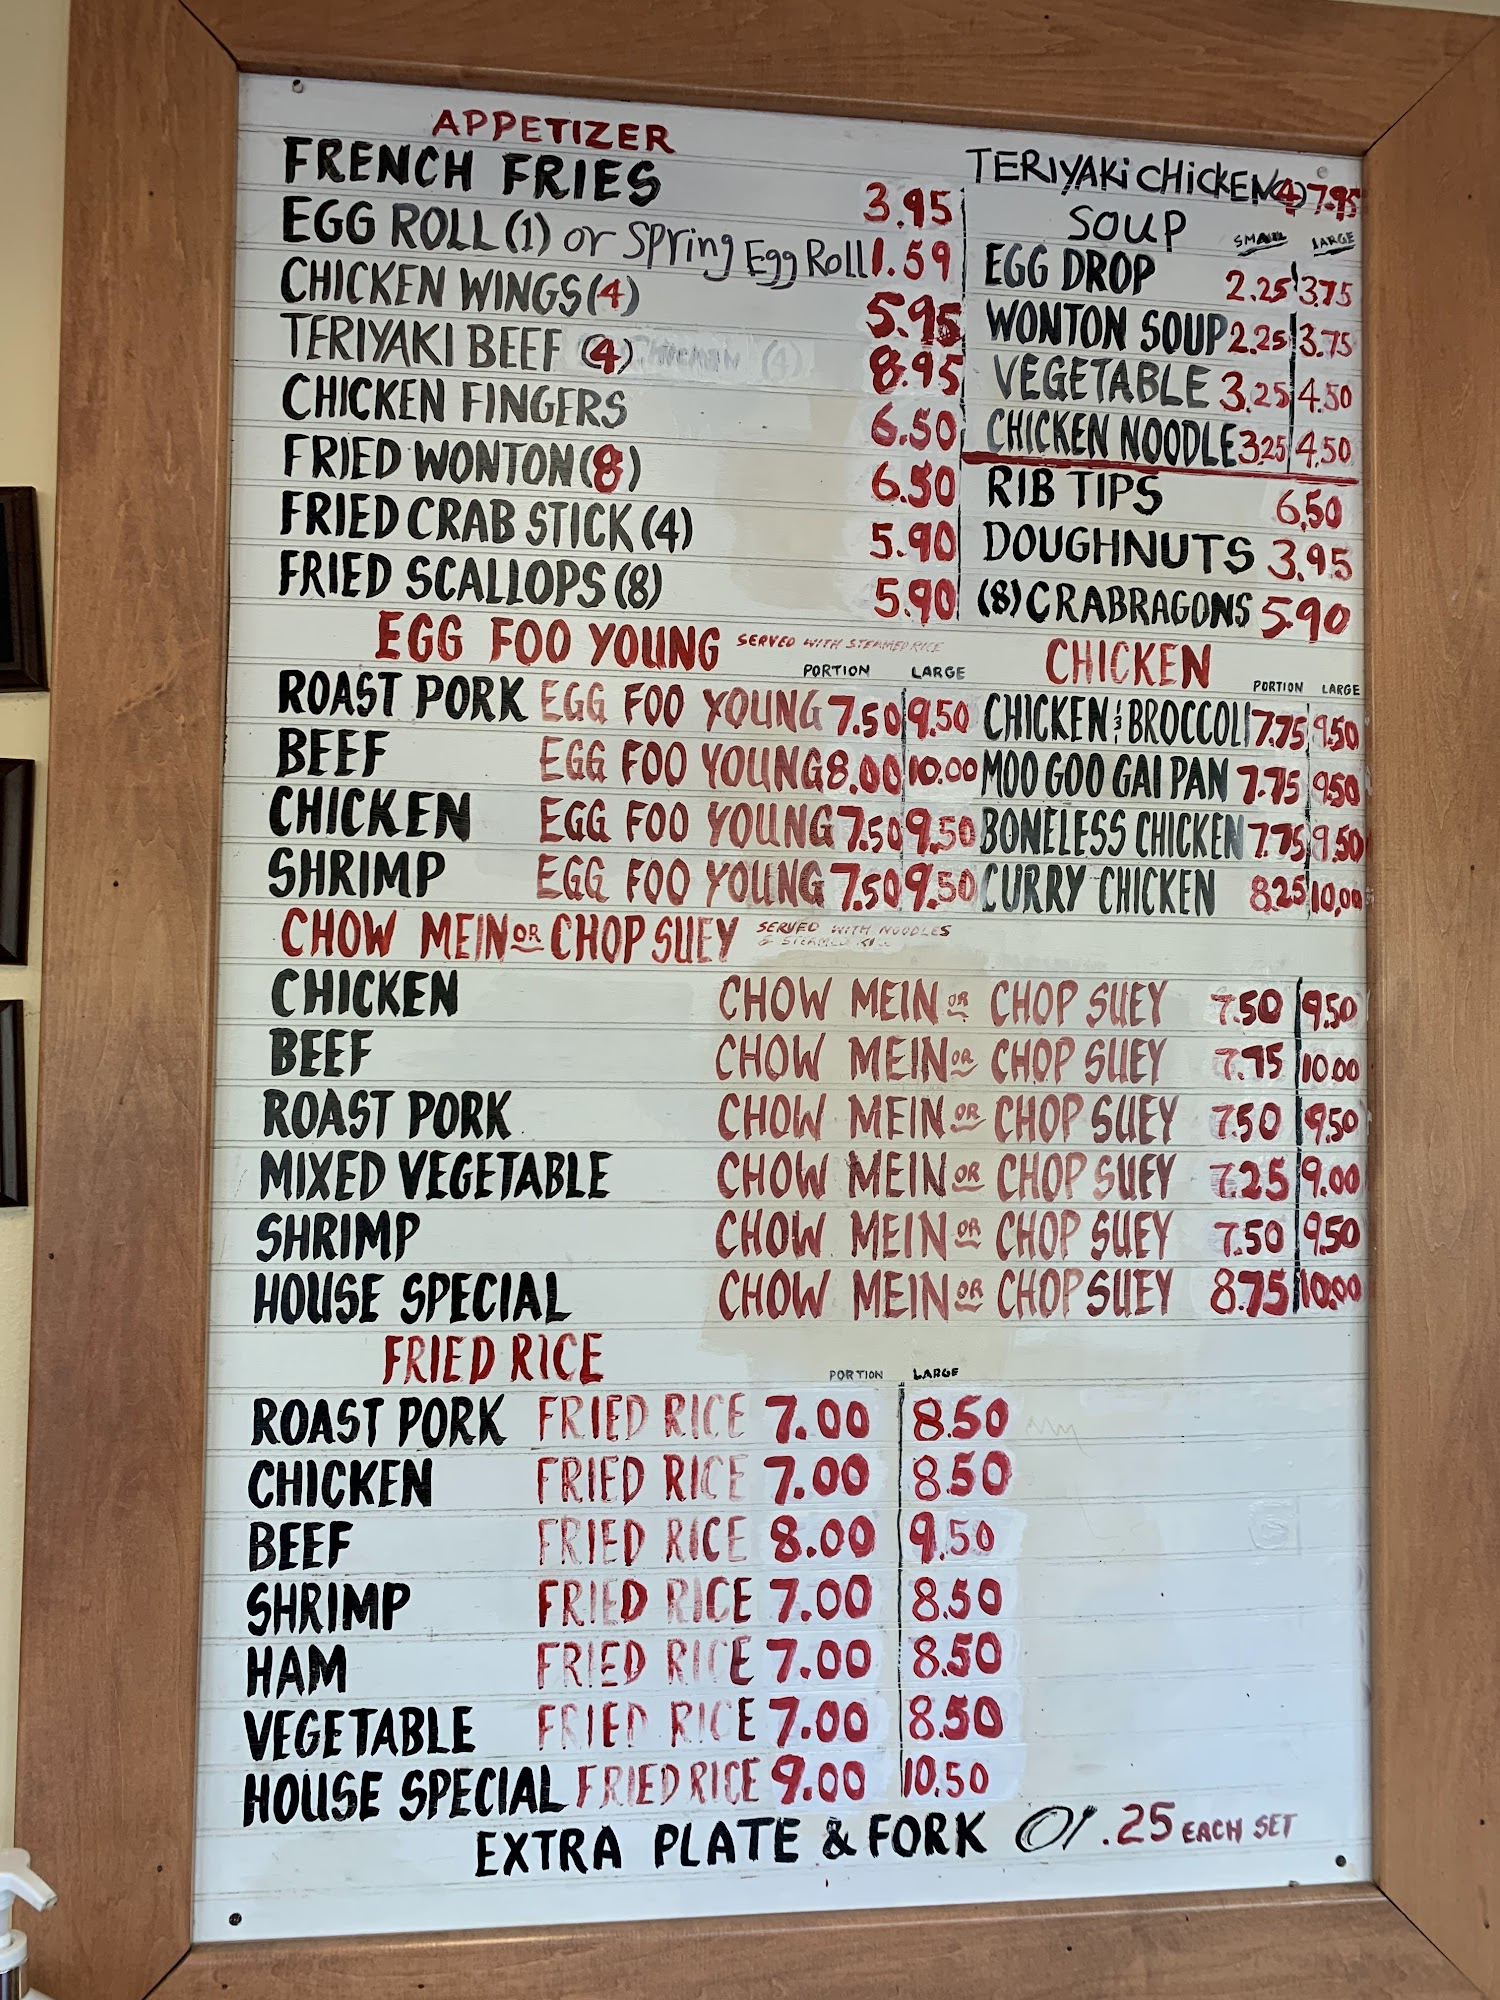 APPETIZER
FRENCH FRIES 3.95
EGG ROLL (1) or Spring Egg Roll 1.59
CHICKEN WINGS (4) 5.95
TERIYAKI BEEF (4) 8.95
CHICKEN FINGERS 6.50
FRIED WONTON (8) 6.50
FRIED CRAB STICK (4) 5.90
FRIED SCALLOPS (8) 5.90
TERIYAKI CHICKEN (4) 7.95
SOUP SMALL LARGE
EGG DROP 2.25 3.75
WONTON SOUP 2.25 3.75
VEGETABLE 3.25 4.50
CHICKEN NOODLE 3.25 4.50
RIB TIPS 6.50
DOUGHNUTS 3.95
(8) CRABRAGONS 5.90
EGG FOO YOUNG SERVED WITH STEAMED RICE
PORTION LARGE
ROAST PORK EGG FOO YOUNG 7.50 9.50
BEEF EGG FOO YOUNG 8.00 10.00
CHICKEN EGG FOO YOUNG 7.50 9.50
SHRIMP EGG FOO YOUNG 7.50 9.50
CHICKEN
PORTION LARGE
CHICKEN & BROCCOLI 7.75 9.50
MOO GOO GAI PAN 7.75 9.50
BONELESS CHICKEN 7.75 9.50
CURRY CHICKEN 8.25 10.00
CHOW MEIN OR CHOP SUEY SERVED WITH NOODLES
& STEAMED RICE
CHICKEN CHOW MEIN OR CHOP SUEY 7.50 9.50
BEEF CHOW MEIN OR CHOP SUEY 7.75 10.00
ROAST PORK CHOW MEIN OR CHOP SUEY 7.50 9.50
MIXED VEGETABLE CHOW MEIN OR CHOP SUEY 7.25 9.00
SHRIMP CHOW MEIN OR CHOP SUEY 7.50 9.50
HOUSE SPECIAL CHOW MEIN OR CHOP SUEY 8.75 10.00
FRIED RICE
PORTION LARGE
ROAST PORK FRIED RICE 7.00 8.50
CHICKEN FRIED RICE 7.00 8.50
BEEF FRIED RICE 8.00 9.50
SHRIMP FRIED RICE 7.00 8.50
HAM FRIED RICE 7.00 8.50
VEGETABLE FRIED RICE 7.00 8.50
HOUSE SPECIAL FRIED RICE 9.00 10.50
EXTRA PLATE & FORK .25 EACH SET